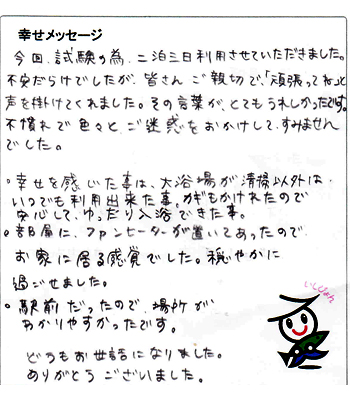 幸せメッセージ
今回、試験の為、二泊三日利用させていただきました。
不安だらけでしたが、皆さんご親切で、「頑張ってね」と
声を掛けてくれました。その言葉が、とてもうれしかったです。
不慣れで色々とご迷惑をおかけして、すみません
でした。
・幸せを感じた事は、大浴場が清掃以外は、
いつでも利用出来た事。カギもかけれたので
安心して、ゆったり入浴できた事。
・部屋に、ファンヒーターが置いてあったので、
お家に居る感覚でした。穏やかに
過ごせました。
・駅前だったので、場所が
わかりやすかったです。
どうもお世話になりました。
ありがとうございました。